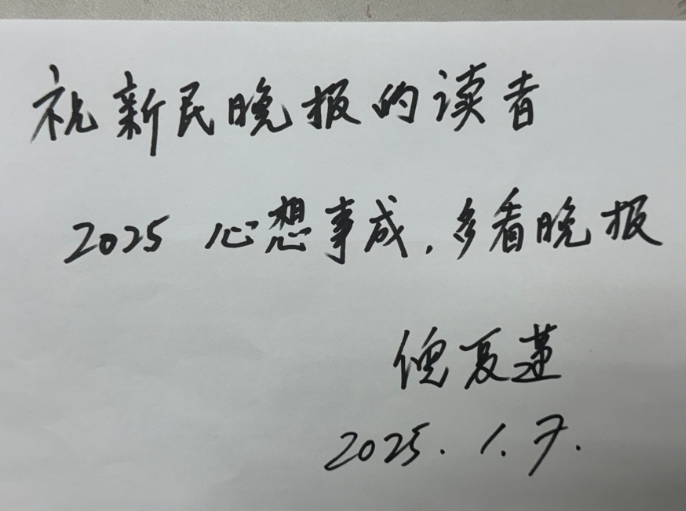 祝新民晚报的读者
2025 心想事成，多看晚报
倪夏莲
2025.1.7.